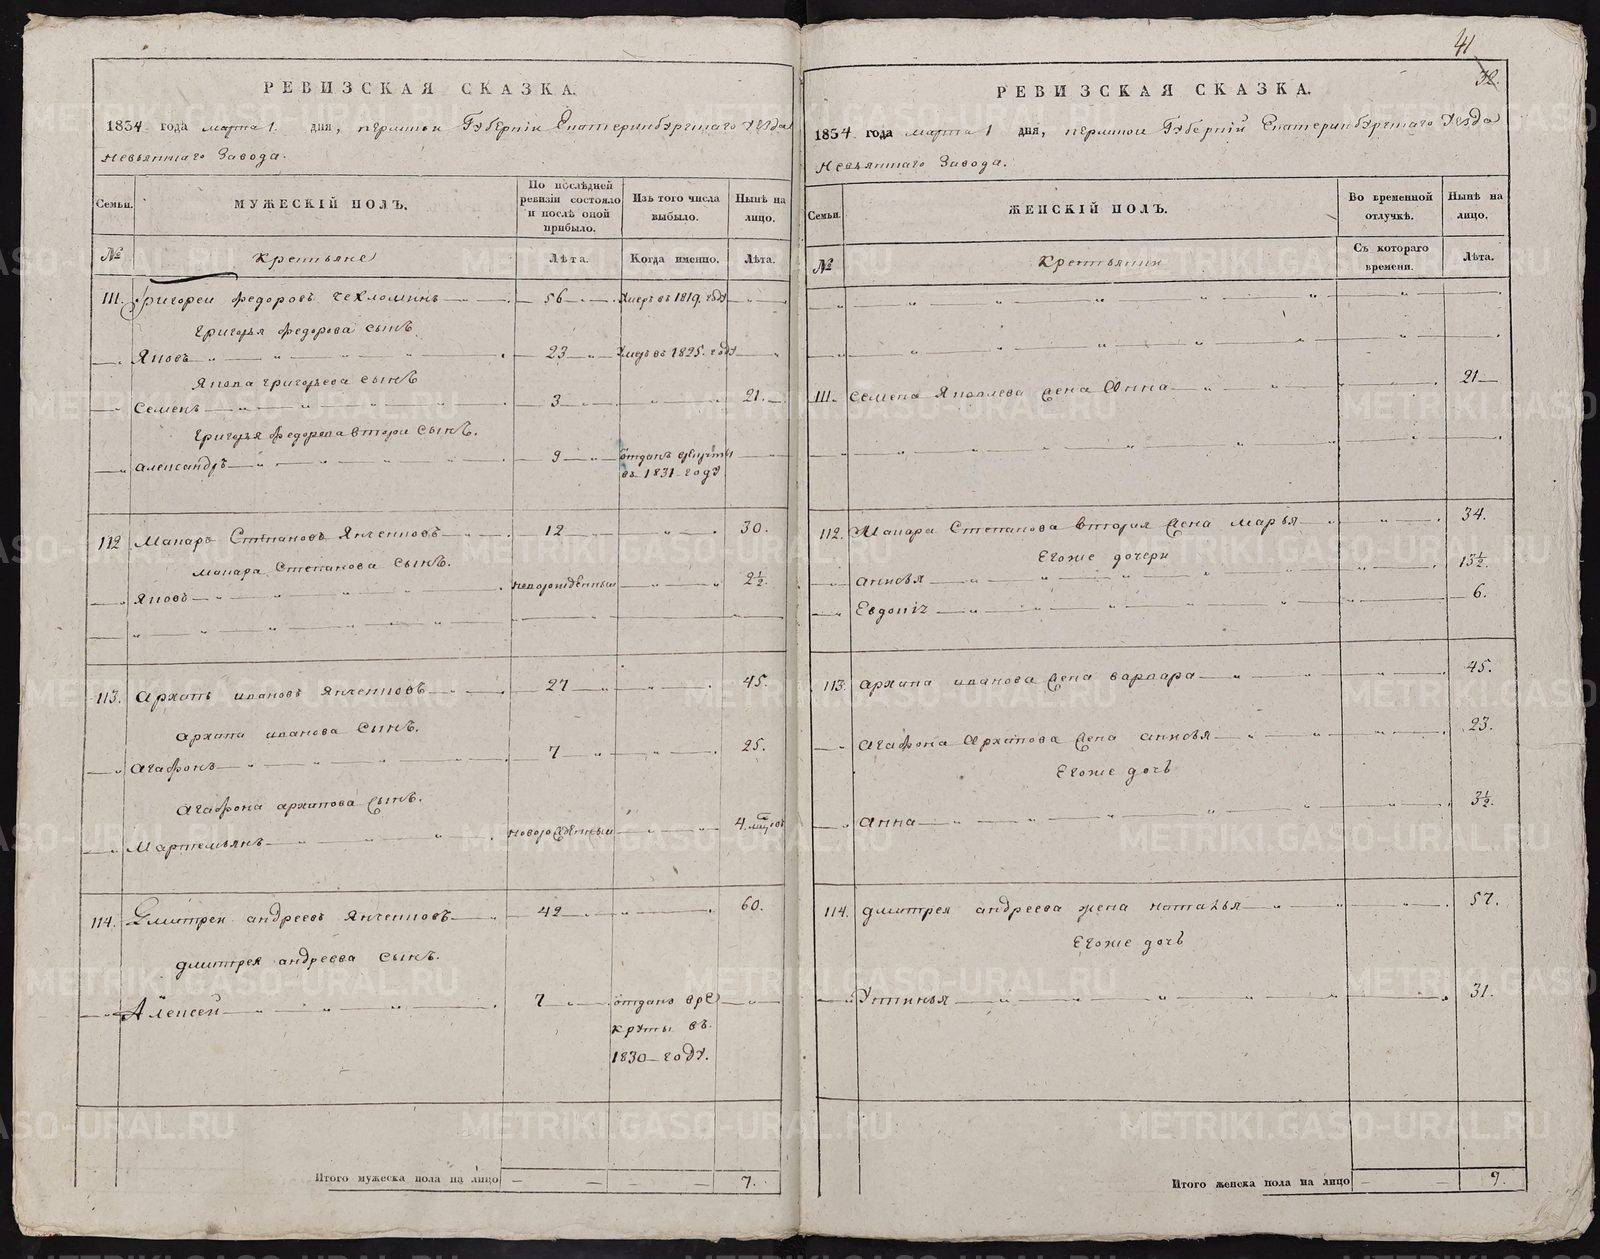 41
38.
РЕВИЗСКАЯ СКАЗКА.
1834 года марта 1. дня, пермскои Губерніи Екатеринбургскаго уезда
Невьянскаго Завода.
Семьи.
МУЖЕСКІЙ ПОЛЪ.
По послѣдней ревизіи состояло и послѣ оной прибыло.
Изъ того числа выбыло.
Нынѣ на лицо.
№
Крестьяне
Лѣта.
Когда именно.
Лѣта.
111. Григореи федоровъ 56 Умеръ въ 1819 году
Григорья федорова сынъ
Яковъ 23 Умеръ въ 1825. году
Якова григорьева сынъ
Семенъ 3 21.
Григорья федорова втори сынъ.
александръ 9 отданъ врекруты
въ 1831 году
112 Макаръ Степановъ Янченковъ 12 30.
макара Степанова сынъ.
Яковъ новорожденныи 2½.
113. Архипъ ивановъ янченковъ 27 45.
архипа иванова сынъ.
агафонъ 7 25.
агафона архипова сынъ.
Мартемьянъ новорожденныи 4. мцовъ
114. Дмитреи андреевъ янченковъ 42 60.
дмитрея андреева сынъ.
Алексеи 7 отданъ вре
круты въ
1830 году.
Итого мужеска пола на лицо 7.
РЕВИЗСКАЯ СКАЗКА.
1834 года марта 1 дня, пермскои Губерніи Екатеринбургскаго уезда
Невьянскаго Завода.
Семьи.
ЖЕНСКІЙ ПОЛЪ.
Во временной отлучкѣ.
Нынѣ на лицо.
№
Крестьянки
Съ котораго времени.
Лѣта.
111. Семена Яковлева жена Анна 21
112. Макара Степанова вторая жена марья 34.
Егоже дочери
анисья 13½.
Евдокіч 6.
113. архипа иванова жена варвара 45.
агафона Архипова жена анисья 23.
Егоже дочь
анна 3½.
114. дмитрея андреева жена наталья 57.
Егоже дочь
Устинья 31.
Итого женска пола на лицо 9.
METRIKI.GASO-URAL.RU